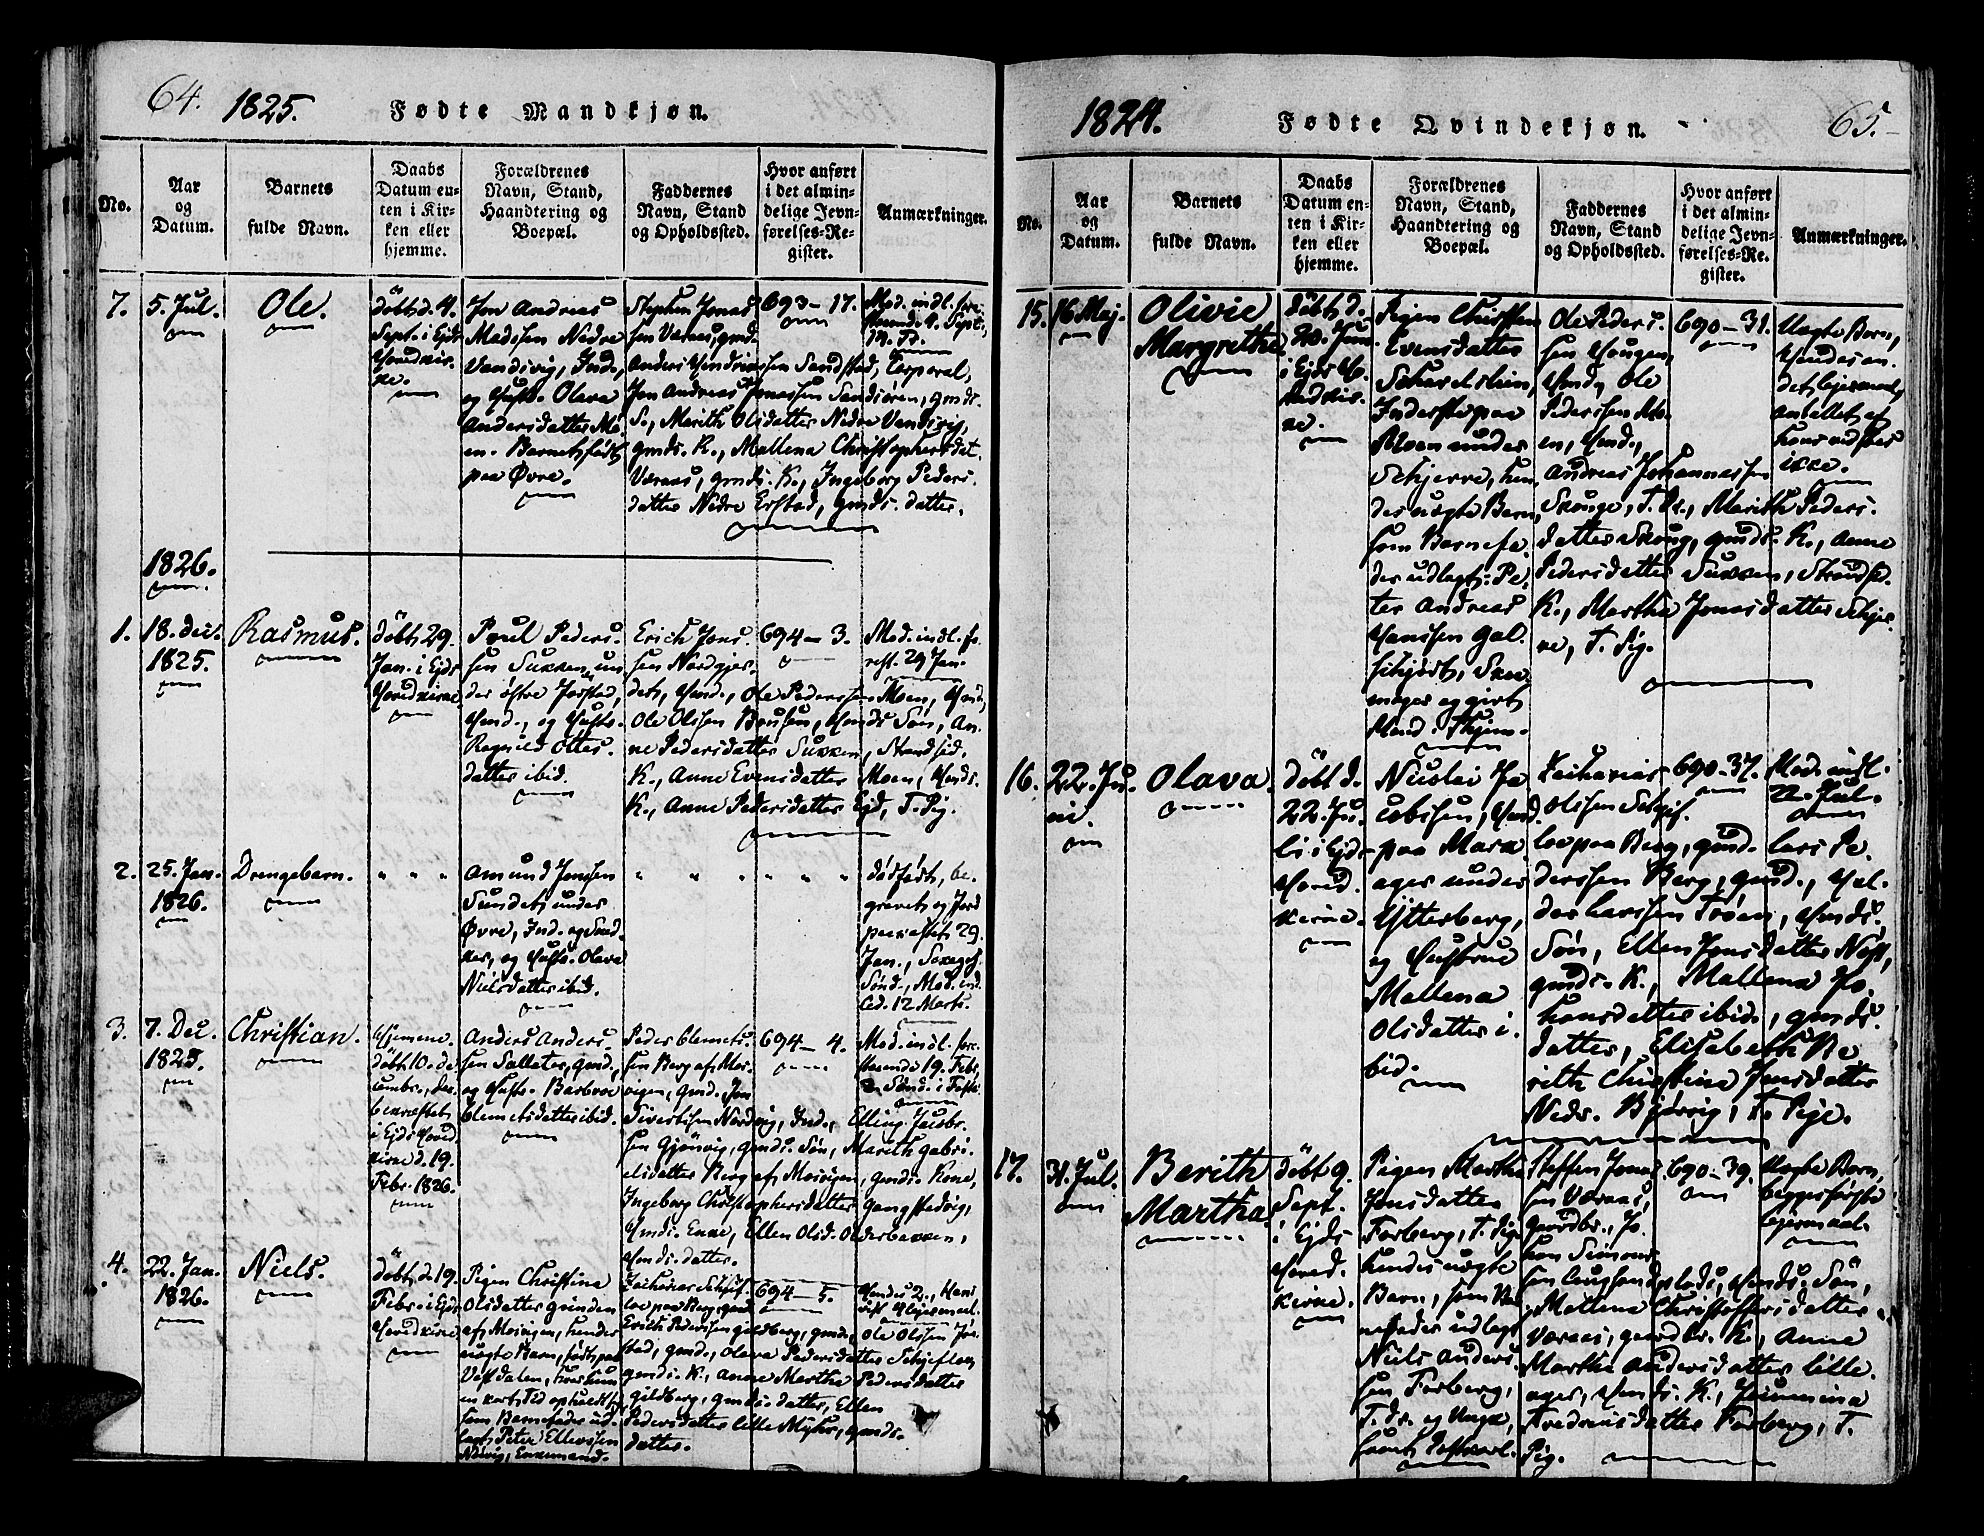 64.
1825.
Fødte Mandkjøn.
No.
Aar
og
Datum.
Barnets
fulde Navn.
Daabs
Datum en-
ten i Kir-
ken eller
hjemme.
Forældrenes
Navn, Stand,
Haandtering og
Boepæl.
Faddernes
Navn, Stand
og Opholdssted.
Hvor anført
i det almin-
delige Jevn-
førelses-Re-
gister.
Anmærkninger.
7.
5. Jul.
Ole.
döbt d. 4.
Sept. i Ejds
Hovedkir-
ke.
Jon Andreas
Madssen Nedre
Vandsvig, Ind.,
og Hust. Olava
Andersdatter Mo-
en. Barnet født
paa Øvre.
Stephen Jonas-
sen Væraas, gmd.
Anders Hendricssen Sandstad, Corporal,
Jon Andreas Jonassen Sandsören, gmds.
S., Marith Olsdatter Nedre Vandsvig,
gmds. K., Mallena Christophersdat.
Væraas, gmds. K., Ingeborg Peders-
datter Nedre Erstad, gmds. datter.
693 — 17.
Mod. indl. fore-
staaende 4. Sept.,
1826.
1.
18. Dec.
1825.
Rasmus.
döbt 29.
Jan. i Ejds
Hovedkirke
Poul Peders-
sen Suxxen, un-
der östre Jorstad,
Hmd., og Hust.
Ragnild Ottes-
datter ibid.
Erich Jons-
sen Nordgjer-
det, Hmd., Ole Pederssen Moen, Hmd.,
Ole Olssen Bousen, Hmds Søn, An-
ne Pedersdatter Suxxen, Strandsid.
K., Anne Evensdatter Moen, Hmds.
K., Anne Pedersdatter Ejd, T. Pig.
694 — 3.
Mod. indl. fo-
rest. 29 Jan.
2.
25. Jan.
1826.
Drengebarn.
" " "
Amund Jonssen
Sundet under
Øvre, Ind. og Sned-
ker, og Hust. Olava
Nielsdatter ibid.
" " " " " "
dødfødt, be-
gravet og Jord
paakastet 29.
Jan., Sexages.
Sønd., Mod. ind
led. 12 Marts.
3.
7. Dec.
1825.
Christian.
Hjemme-
döbt 10. De-
cembr., Daa-
ben stadfæstet
i Ejds Hoved-
kirke d. 19.
Febr. 1826.
Anders Anders-
sen Salleter, gmd.,
og Hust. Barbroe
Clemetsdatter ibid.
Peder Clemets-
sen Berg af Moe-
vigen, gmd., Jon
Sivertssen Nordvig, Ind., Elling Jacobs-
sen Gjönvig, gmds. Søn, Marith Gabri-
elsdatter Berg af Moevigen, gmds. Kone,
Ingeborg Christophersdatter Gangstedvig,
Hmds. Enke, Ellen Olsd. Olderbakken,
Hmds. datter.
694 — 4.
Mod. indl. fore-
staaende 19. Febr.
2. Sønd. i Faste.
4.
22. Jan.
1826.
Niels.
döbt d. 19.
Febr. i Ejds
Hovedkirke
Pigen Christina
Olsdatter Grinden
af Moevigen, hendes
uægte Barn, født paa
Vestdalen, hvor hun
en kort Tid opholdt sig,
som Barnefader ud-
lagt, Peter Ellevssen
Nævig, Enkemand.
Zacharias Schjef-
lov paa Berg, gmd.
Erich Pederssen Gildberg, gmd., Ole Olssen Jör-
stad, gmd., Olava Pedersdatter Schjefloen
gmds. K., Anne Marthe Pedersdatter
Gildberg, gmds. datter, Ellen
Pedersdatter lille Myhr, gmds.
datter.
694 — 5.
Hendes 2., Hans
vist 4 Lejermaal.
1824.
Fødte Qvindekjøn.
65.
No.
Aar
og
Datum.
Barnets
fulde Navn.
Daabs
Datum en-
ten i Kir-
ken eller
hjemme.
Forældrenes
Navn, Stand,
Haandtering og
Boepæl.
Faddernes
Navn, Stand
og Opholdssted.
Hvor anført
i det almin-
delige Jevn-
førelses-Re-
gister.
Anmærkninger.
15.
16. Maj.
Olivie
Margrethe
döbt d.
20. Jun.
i Ejds Ho-
vedkir-
ke.
Pigen Christen
Evensdatter
Inderste paa
Moen under
Schjerve, hen-
des uægte Barn,
som Barnefa-
der udlagt: Pe-
ter Andreas
Hanssen Gal-
schjödt, Skoe-
mager og givt
Mand i Thjem.
Ole Peders-
sen Hougen,
Hmd., Ole
Pederssen Mo-
en, Hmd.,
Andreas Johannessen
Skouge, T. Dr., Marith Peders-
datter Skoug, gmds. K., Anne
Pedersdatter Suxxen, Strandsid.
K., Martha Jonasdatter Schjer-
ve, T. Pig.
690 — 31.
Uægte Barn,
Hendes an-
det lejermaal,
antallet af
hans vedstaaes
ikke.
16.
22. Ju-
ni.
Olava.
döbt d.
22. Ju-
li i Ejds
Hoved-
kirke.
Nicolai Ja-
cobssen, Hmd.
paa Marx-
ager under
Ytterberg,
og Hustrue
Mallena
Olsdatter i-
bid.
Zacharias
Olssen Schjef-
lov paa Berg, gmd. Lars Pe-
derssen Berg, gmd., Hal-
dor Larssen Troen, Hmds.
Søn, Ellen Jonsdatter Nöst,
gmds. K., Mallena Jo-
hansdatter ibid., gmds.
datter, Elisabeth Be-
rith Christina Jonsdatter
Nedr. Bjørvig, T. Pige.
690 — 37.
Mod. indl.
22. Jul.
17.
31. Jul.
Berith
Martha.
döbt 9.
Sept.
i Ejds
Hoved-
kirke.
Pigen Martha
Jonsdatter
Forberg, T. Pig.
hendes uægte
Barn, som Bar-
nefader udlagt
Niels Anders-
sen Forberg,
T. dr. og Ungk.,
samt Postkarl.
Steffen Jonas-
sen Væraas,
gaardbr., Jo-
han Simons-
sen Augsandplads, Hmds. Søn,
Mallena Christoffersdatter
Væraas, gaardbr. K., Anne
Martha Andersdatter lille-
ager, Hmds. K., Jacomina
Fredriksdatter Forberg, T.
Pig.
690 — 39.
Uægte Barn,
begges förste
lejermaal.